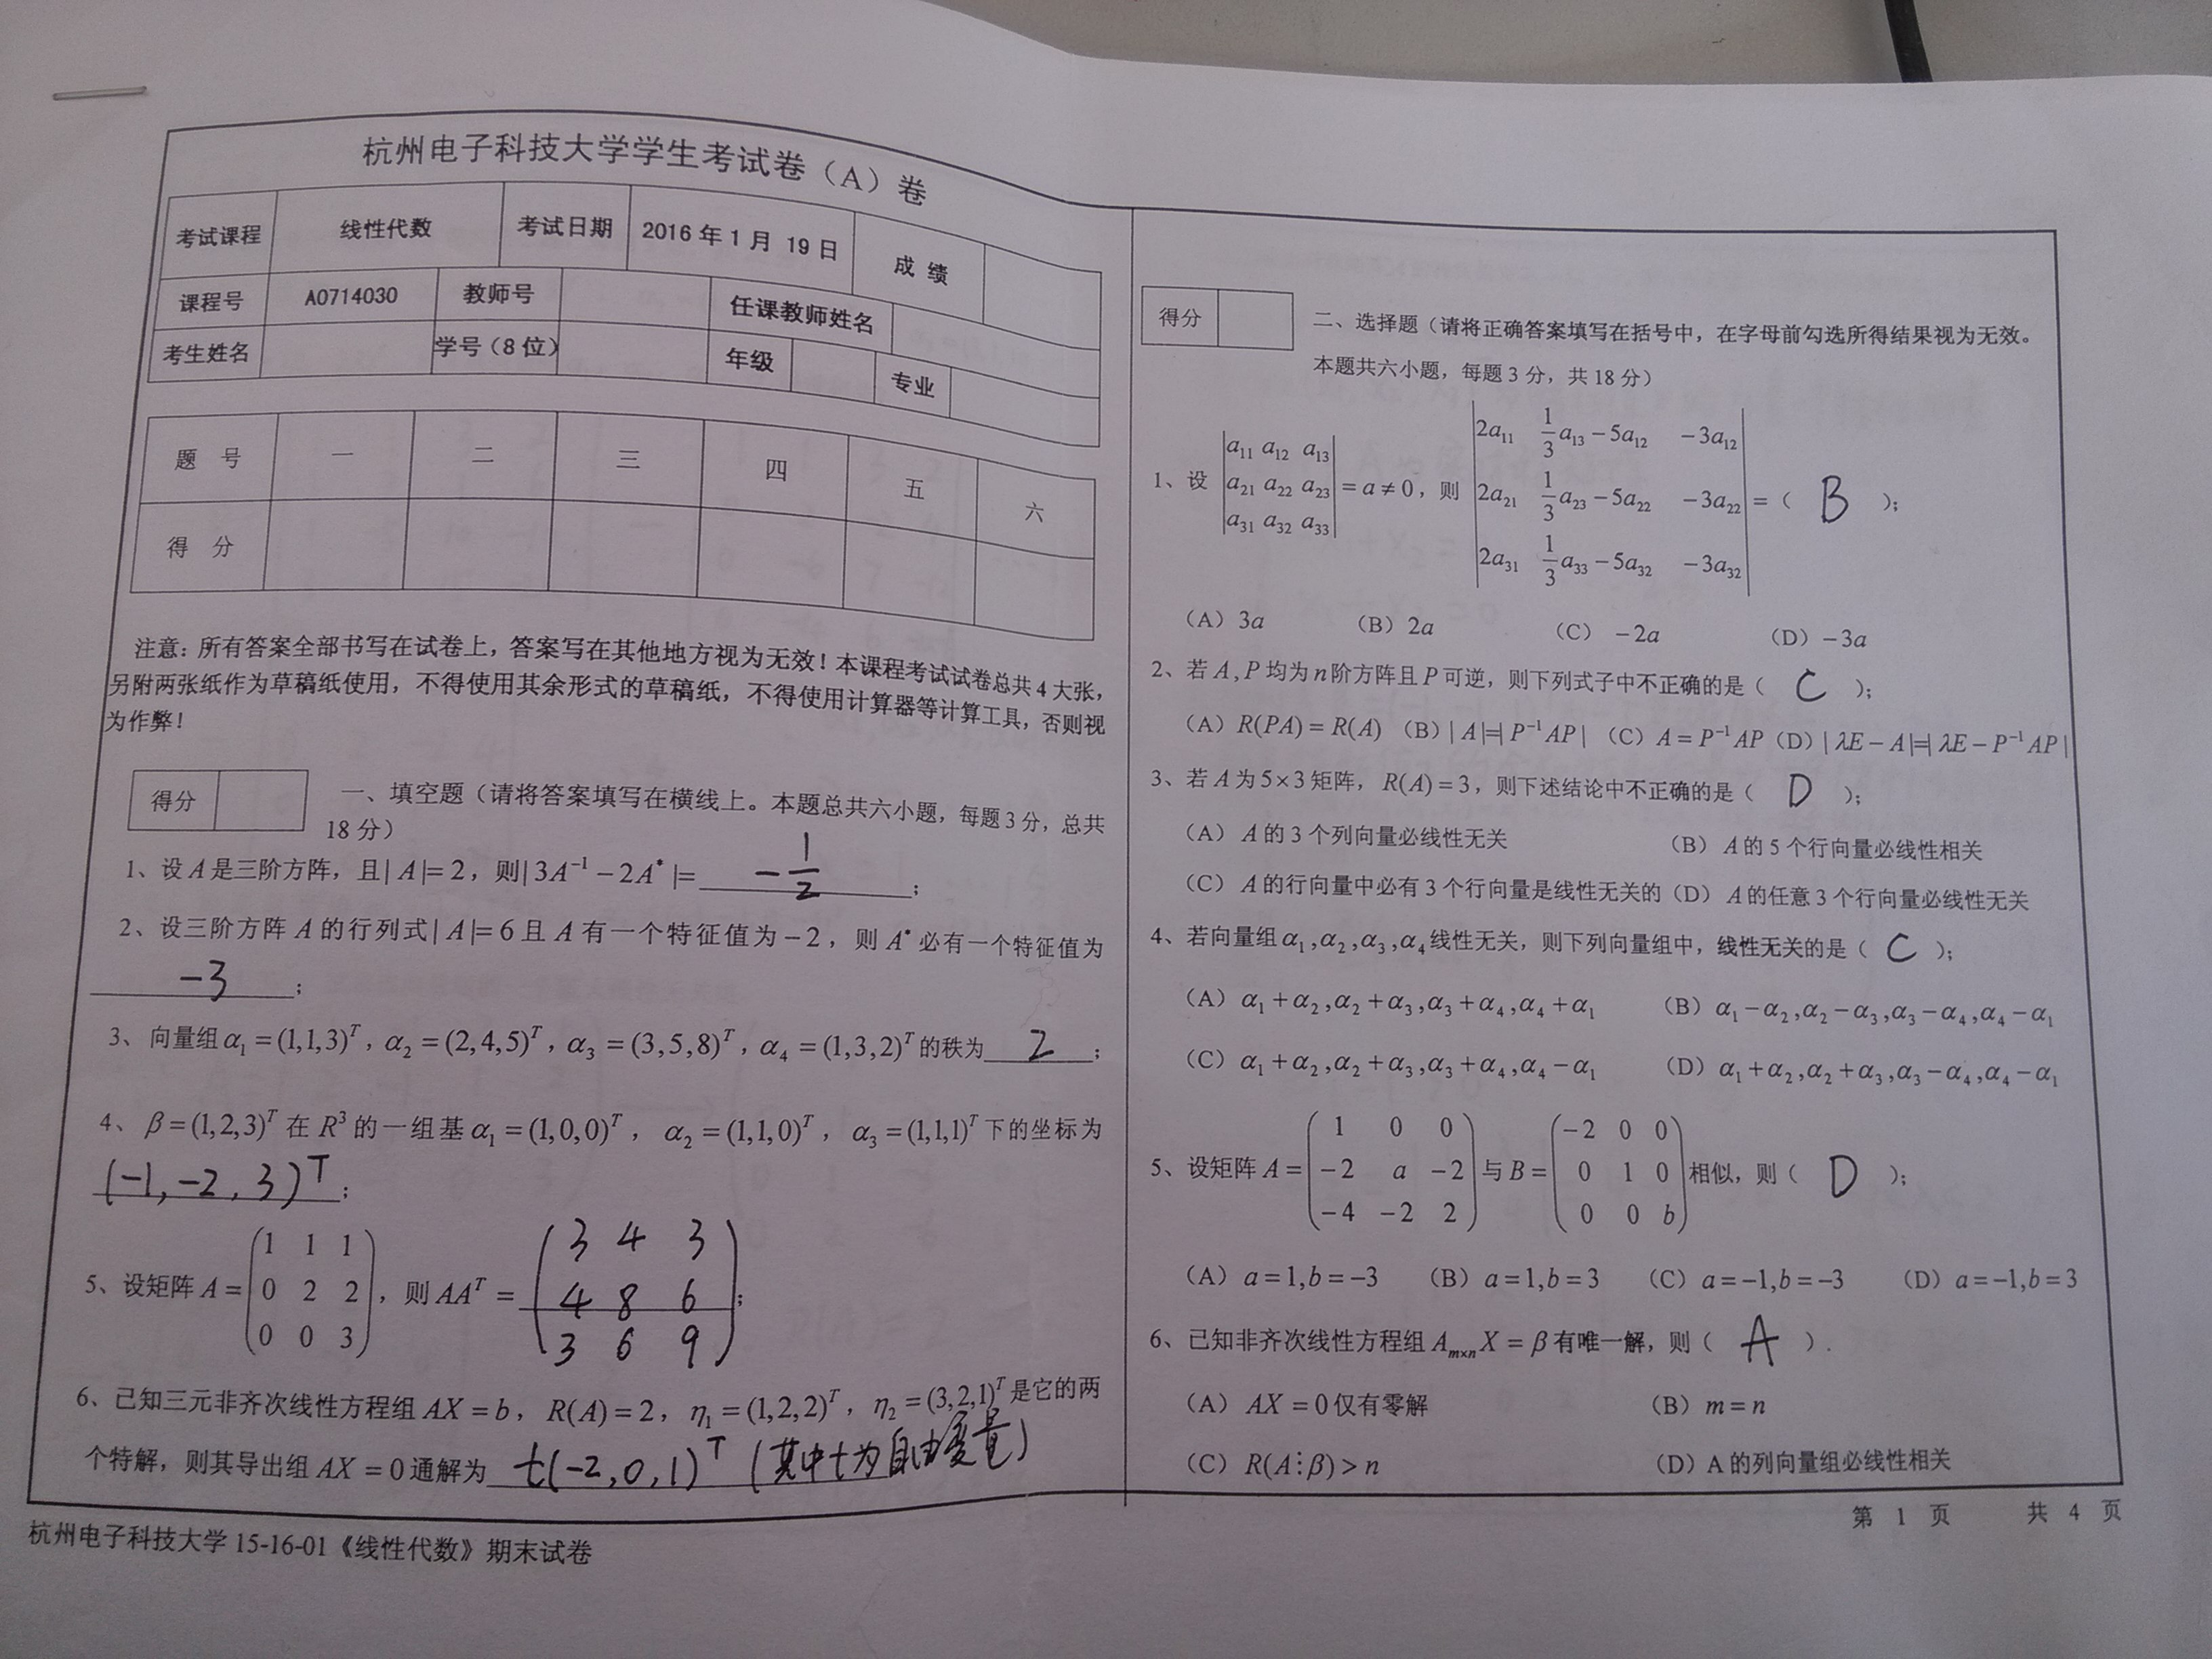 杭州电子科技大学学生考试卷（A）卷
考试课程 线性代数 考试日期 2016 年 1 月 19 日 成 绩
课程号 A0714030 教师号 任课教师姓名
考生姓名 学号（8 位） 年级 专业
题 号 一 二 三 四 五 六
得 分
注意：所有答案全部书写在试卷上，答案写在其他地方视为无效！本课程考试试卷总共 4 大张，
另附两张纸作为草稿纸使用，不得使用其余形式的草稿纸，不得使用计算器等计算工具，否则视
为作弊！
得分
一、填空题（请将答案填写在横线上。本题总共六小题，每题 3 分，总共
18 分）
1、设 A 是三阶方阵，且| A |= 2，则| 3A⁻¹ − 2A* |= −1/2 ；
2、设三阶方阵 A 的行列式| A |= 6 且 A 有一个特征值为 −2，则 A* 必有一个特征值为
−3 ；
3、向量组 α₁ = (1,1,3)ᵀ，α₂ = (2,4,5)ᵀ，α₃ = (3,5,8)ᵀ，α₄ = (1,3,2)ᵀ 的秩为 2 ；
4、β = (1,2,3)ᵀ 在 R³ 的一组基 α₁ = (1,0,0)ᵀ， α₂ = (1,1,0)ᵀ， α₃ = (1,1,1)ᵀ 下的坐标为
(−1, −2, 3)ᵀ ；
1 1 1 3 4 3
5、设矩阵 A = 0 2 2 ，则 AAᵀ = 4 8 6 ；
0 0 3 3 6 9
6、已知三元非齐次线性方程组 AX = b， R(A) = 2， η₁ = (1,2,2)ᵀ， η₂ = (3,2,1)ᵀ 是它的两
个特解，则其导出组 AX = 0 通解为 t(−2, 0, 1)ᵀ (其中t为自由变量)
杭州电子科技大学 15-16-01《线性代数》期末试卷
得分
二、选择题（请将正确答案填写在括号中，在字母前勾选所得结果视为无效。
本题共六小题，每题 3 分，共 18 分）
a₁₁ a₁₂ a₁₃ 2a₁₁ 1/3 a₁₃ − 5a₁₂ −3a₁₂
1、设 a₂₁ a₂₂ a₂₃ = a ≠ 0，则 2a₂₁ 1/3 a₂₃ − 5a₂₂ −3a₂₂ =（ B ）；
a₃₁ a₃₂ a₃₃ 2a₃₁ 1/3 a₃₃ − 5a₃₂ −3a₃₂
（A）3a （B）2a （C） −2a （D）−3a
2、若 A, P 均为 n 阶方阵且 P 可逆，则下列式子中不正确的是（ C ）；
（A）R(PA) = R(A) （B）| A |=| P⁻¹AP | （C）A = P⁻¹AP （D）| λE − A |=| λE − P⁻¹AP |
3、若 A 为 5×3 矩阵，R(A) = 3，则下述结论中不正确的是（ D ）；
（A） A 的 3 个列向量必线性无关 （B） A 的 5 个行向量必线性相关
（C） A 的行向量中必有 3 个行向量是线性无关的 （D） A 的任意 3 个行向量必线性无关
4、若向量组 α₁, α₂, α₃, α₄ 线性无关，则下列向量组中，线性无关的是（ C ）；
（A） α₁ + α₂, α₂ + α₃, α₃ + α₄, α₄ + α₁ （B） α₁ − α₂, α₂ − α₃, α₃ − α₄, α₄ − α₁
（C） α₁ + α₂, α₂ + α₃, α₃ + α₄, α₄ − α₁ （D） α₁ + α₂, α₂ + α₃, α₃ − α₄, α₄ − α₁
1 0 0 −2 0 0
5、设矩阵 A = −2 a −2 与 B = 0 1 0 相似，则（ D ）；
−4 −2 2 0 0 b
（A）a = 1, b = −3 （B）a = 1, b = 3 （C）a = −1, b = −3 （D）a = −1, b = 3
6、已知非齐次线性方程组 Aₘₓₙ X = β 有唯一解，则（ A ）．
（A） AX = 0 仅有零解 （B） m = n
（C） R(A⋮β) > n （D）A 的列向量组必线性相关
第 1 页 共 4 页